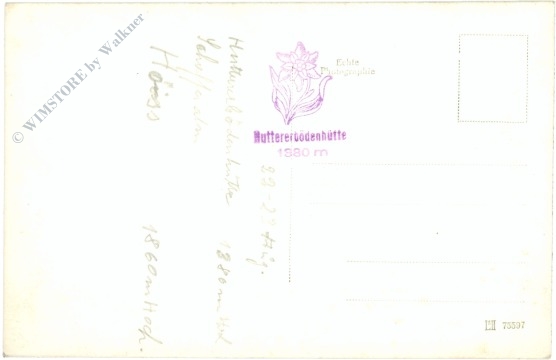 © WIMSTORE by Walkner
Echte
Photographie
Huttererbödenhütte
1380 m
Huttererbödenhütte 1380m
Höss 1860m Hoch.
Aug.
75597